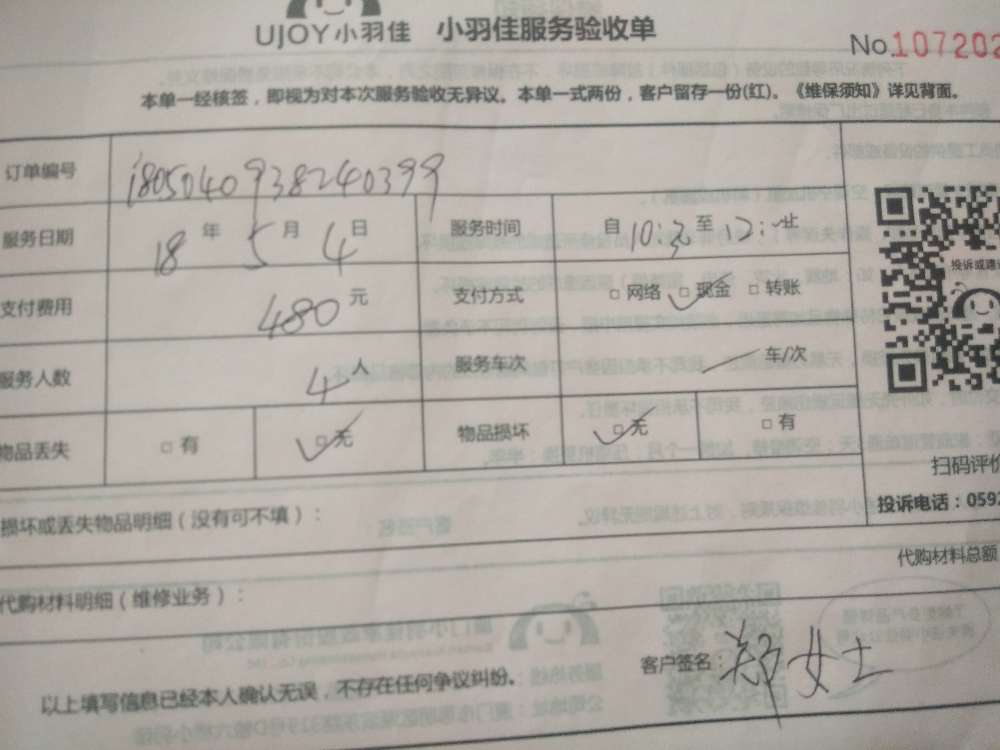 UJOY小羽佳 小羽佳服务验收单
No.107202
本单一经核签，即视为对本次服务验收无异议。本单一式两份，客户留存一份(红)。《维保须知》详见背面。
订单编号 1805040938240399
服务日期 18 年 5 月 4 日 服务时间 自 10: 至
支付费用 480 元 支付方式 □网络 □现金 □转账
服务人数 4 人 服务车次 车/次
物品丢失 □有 □无 物品损坏 □无 □有
投诉或建议
扫码评价
投诉电话：0592
损坏或丢失物品明细（没有可不填）：
代购材料总额
代购材料明细（维修业务）：
以上填写信息已经本人确认无误，不存在任何争议纠纷。 客户签名：郑女士